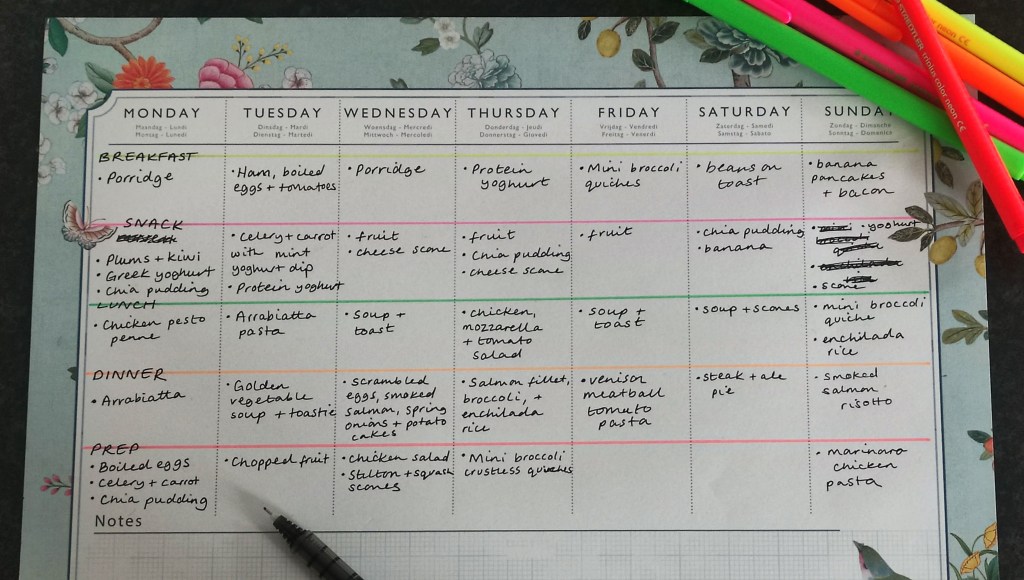 STAEDTLER triplus color neon CE
neon CE
MONDAY TUESDAY WEDNESDAY THURSDAY FRIDAY SATURDAY SUNDAY
Maandag - Lundi Dinsdag - Mardi Woensdag - Mercredi Donderdag - Jeudi Vrijdag - Vendredi Zaterdag - Samedi Zondag - Dimanche
Montag - Lunedì Dienstag - Martedì Mittwoch - Mercoledì Donnerstag - Giovedì Freitag - Venerdì Samstag - Sabato Sonntag - Domenica
BREAKFAST
• Porridge
• Ham, boiled
eggs + tomatoes
• Porridge
• Protein
yoghurt
• Mini broccoli
quiches
• beans on
toast
• banana
pancakes
+ bacon
SNACK
• Plums + kiwi
• Greek yoghurt
• Chia pudding
• Celery + carrot
with mint
yoghurt dip
• Protein yoghurt
• fruit
• cheese scone
• fruit
• Chia pudding
• cheese scone
• fruit
• chia pudding
• banana
• yoghurt
• scone
LUNCH
• Chicken pesto
penne
• Arrabiatta
pasta
• Soup +
toast
• chicken,
mozzarella
+ tomato
salad
• soup +
toast
• soup + scones
• mini broccoli
quiche
• enchilada
rice
DINNER
• Arrabiatta
• Golden
vegetable
soup + toastie
• scrambled
eggs, smoked
salmon, spring
onions + potato
cakes
• Salmon fillet,
broccoli, +
enchilada
rice
• venison
meatball
tomato
pasta
• steak + ale
pie
• smoked
salmon
risotto
PREP
• Boiled eggs
• Celery + carrot
• Chia pudding
• Chopped fruit
• Chicken salad
• Stilton + squash
scones
• Mini broccoli
crustless quiches
• marinara
chicken
pasta
Notes